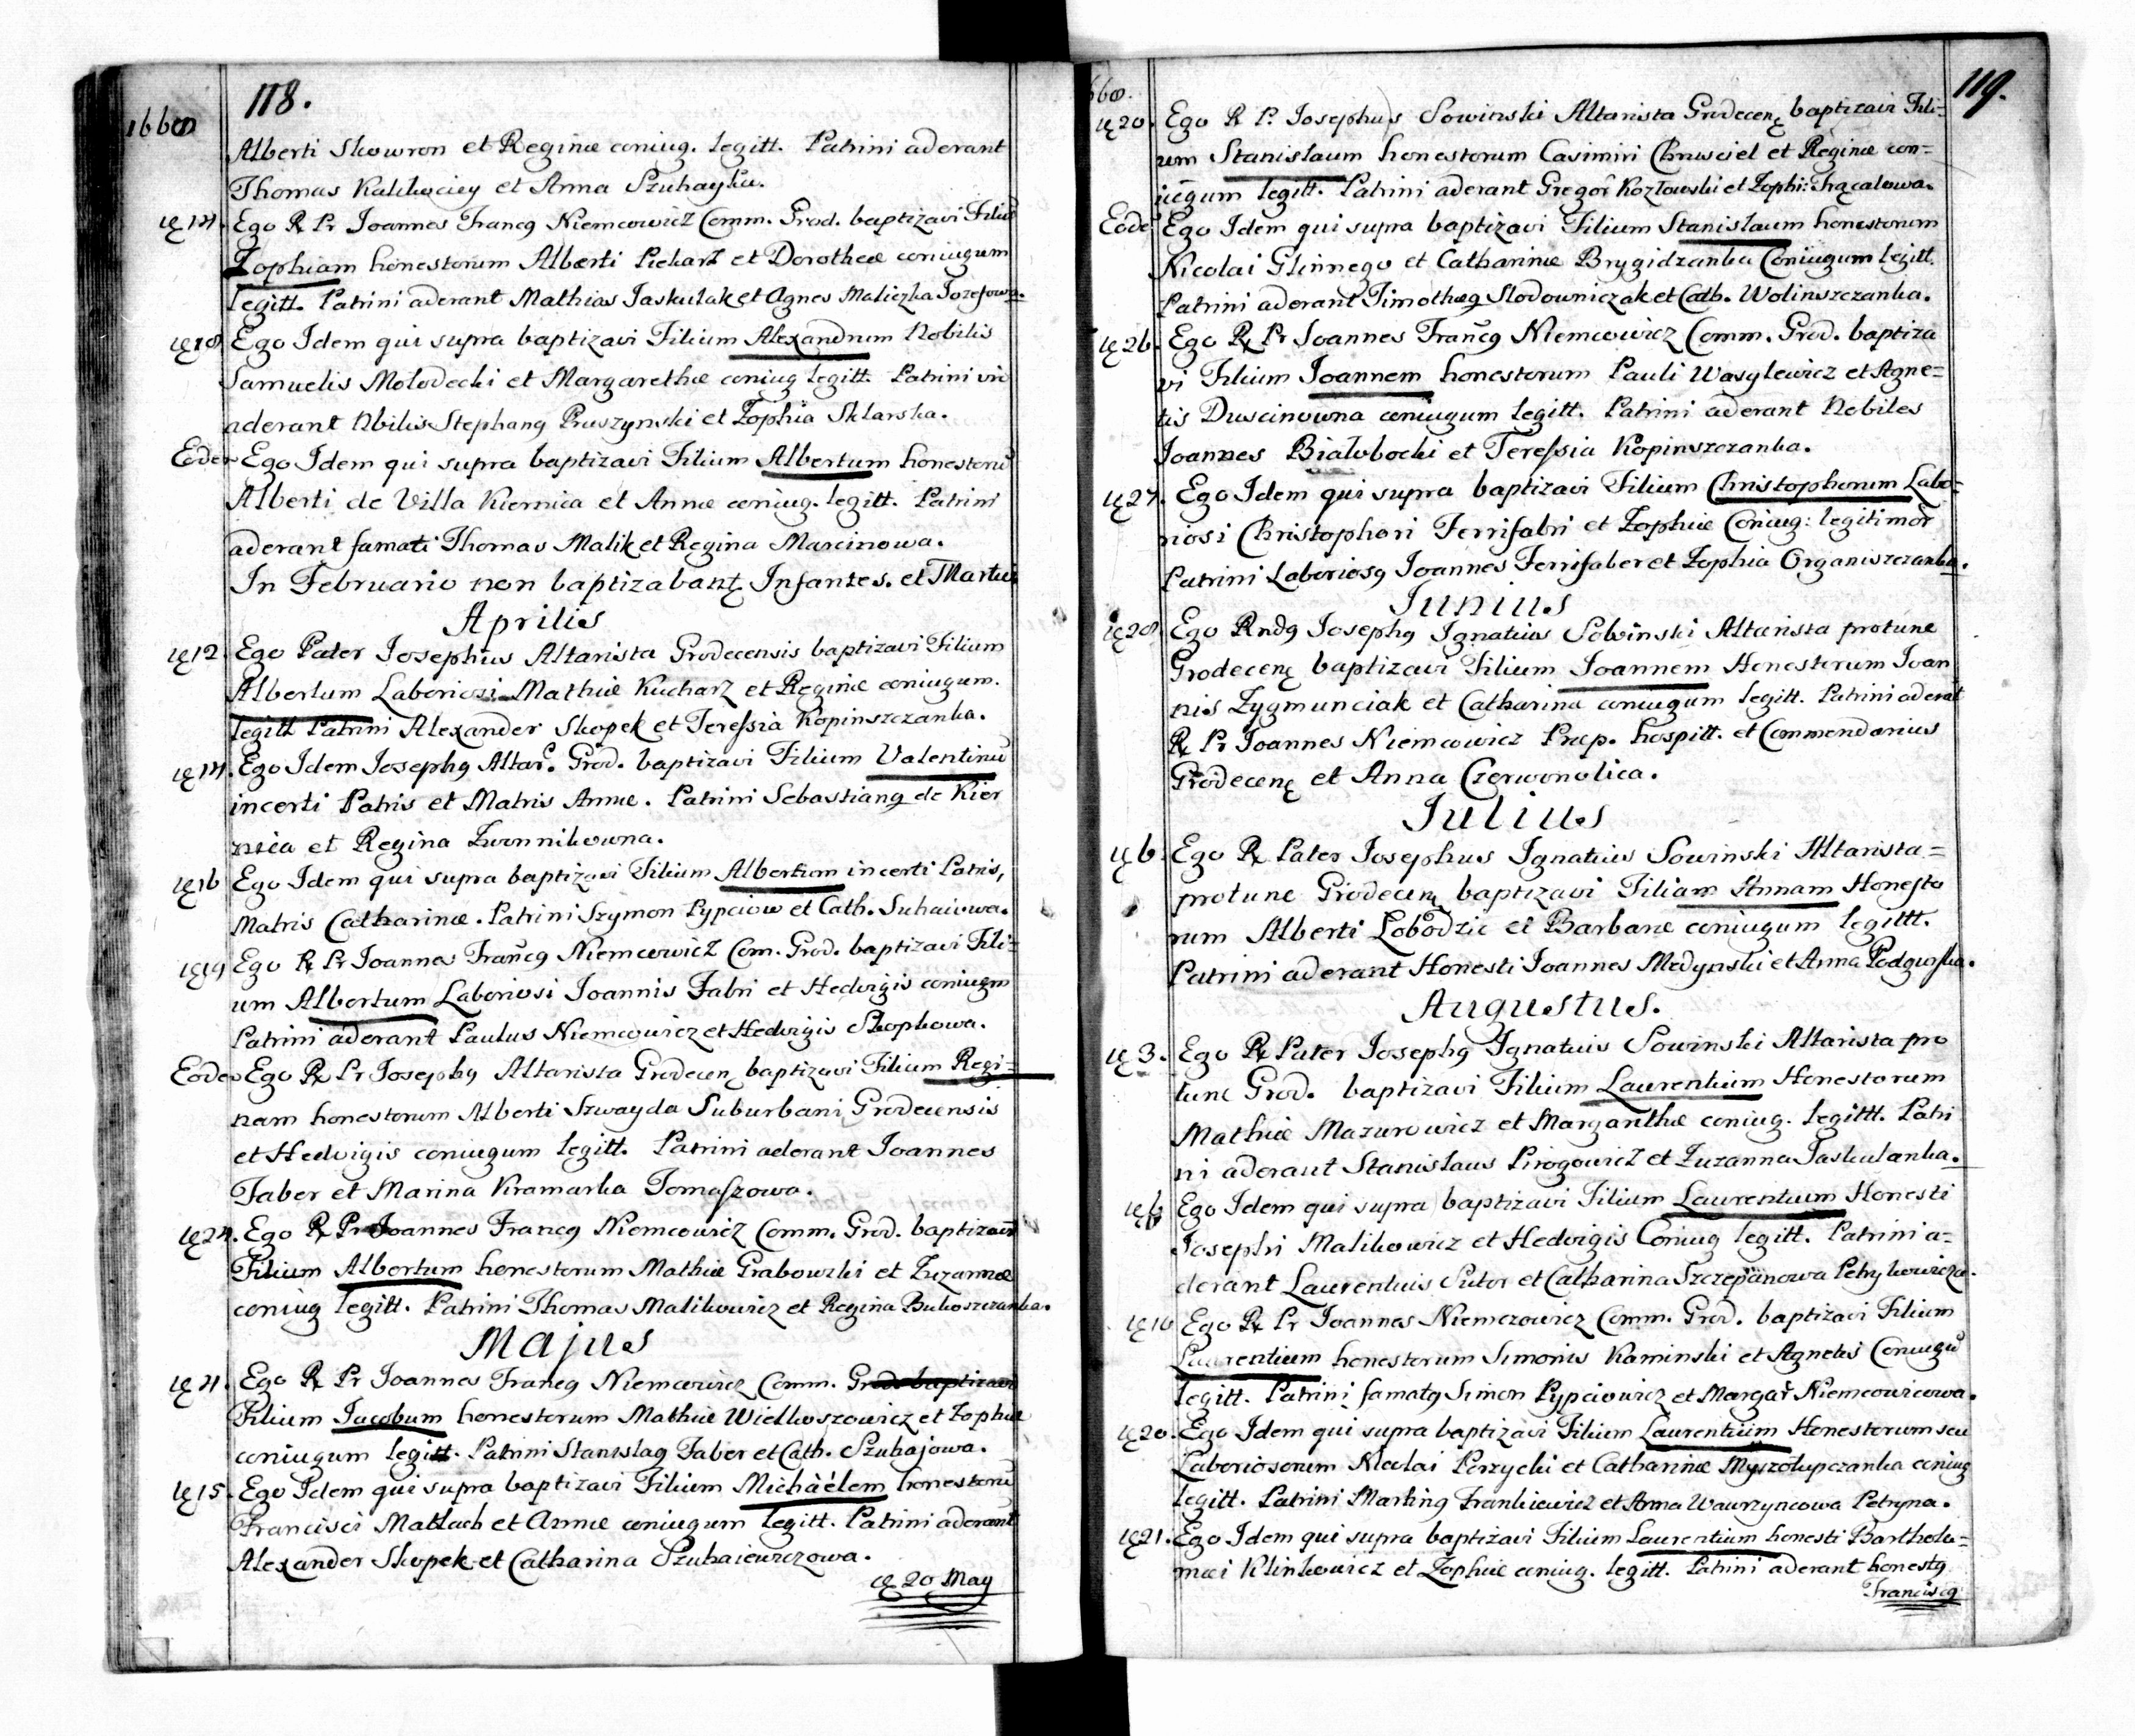 118.
1660
Alberti Skowron et Reginæ coniug. legitt. Patrini aderant
Thomas Kalikuciey et Anna Szuhayka.
14. Ego R Pr Joannes Francq Niemcowicz Comm. Grod. baptizavi Filiū
Zophiam honestorum Alberti Piekarz et Dorotheæ coniugum
legitt. Patrini aderant Mathias Jaskulak et Agnes Maliczka Jozefowa.
18 Ego Idem qui supra baptizavi Filium Alexandrum Nobilis
Samuelis Molodecki et Margarethæ coniug legitt. Patrini
aderant Nbilis Stephanq Pruszynski et Zophia Sklarska.
Eodem Ego Idem qui supra baptizavi Filium Albertum honestorū
Alberti de Villa Kiernica et Annæ coniug. legitt. Patrini
aderant famati Thomas Malik et Regina Marcinowa.
In Februario non baptizabant Infantes. et Martii
Aprilis
12. Ego Pater Josephus Altarista Grodecensis baptizavi Filium
Albertum Laboriosi Mathiæ Kucharz et Reginæ coniugum.
legitt Patrini Alexander Skopek et Teressia Kopinszczanka.
14. Ego Idem Josephq Altar. Grod. baptizavi Filium Valentinū
incerti Patris et Matris Annæ. Patrini Sebastianq de Kier
nica et Regina Zwnnikowna.
16 Ego Idem qui supra baptizavi Filium Albertum incerti Patris,
Matris Catharinæ. Patrini Szymon Pypciow et Cath. Suhaiowa.
19 Ego R Pr Joannes Francq Niemcowicz Com. Grod. baptizavi Fili=
um Albertum Laboriosi Joannis Fabri et Hedvigis coniugm
Patrini aderant Paulus Niemcowicz et Hedvigis Skopkowa.
Eodem Ego R Pr Josephq Altarista Grodecen baptizavi Filium Regi=
nam honestorum Alberti Szwayda Suburbani Grodecensis
et Hedvigis coniugum legitt. Patrini aderant Joannes
Faber et Marina Kramarka Tomaszowa.
24. Ego R Pr Joannes Francq Niemcowicz Comm. Grod. baptizavi
Filium Albertum honestorum Mathiæ Grabowski et Zuzannæ
coniug legitt. Patrini Thomas Malikowicz et Regina Bukoszczanka.
Majus
4. Ego R Pr Joannes Francq Niemcowicz Comm. Grod. baptizavi
Filium Jacobum honestorum Mathiæ Wielkoszowicz et Zophiæ
coniugum legitt. Patrini Stanislaq Faber et Cath. Szuhajowa.
15. Ego Idem qui supra baptizavi Filium Michäelem honestorū
Francisci Matlach et Annæ coniugum legitt. Patrini aderant
Alexander Skopek et Catharina Szuhaiewiczowa.
20 May
119.
660.
20. Ego R P. Josephus Sowinski Altarista Grodecen baptizavi Fili=
um Stanislaum honestorum Casimiri Chrusciel et Reginæ con=
iugum legitt. Patrini aderant Gregor Kozłowski et Zophi: Trącalowa.
Eodē Ego Idem qui supra baptizavi Filium Stanislaum honestorum
Nicolai Glinnego et Catharinæ Brygidzanka Coniugum legitt.
Patrini aderant Timotheq Slodowniczak et Cath. Wolinszczanka.
26. Ego R Pr Joannes Francq Niemcowicz Comm. Grod. baptiza
vi Filium Joannem honestorum Pauli Wasylewicz et Agne=
tis Duscinowna coniugum legitt. Patrini aderant Nobiles
Joannes Białobocki et Teressia Kopinszczanka.
27. Ego Idem qui supra baptizavi Filium Christophorum Labo=
riosi Christophori Ferrifabri et Zophiæ Coniug: legitimor
Patrini Laboriosq Joannes Ferrifaber et Zophia Organiszczanka.
Junius
28. Ego Rndq Josephq Ignatius Sobinski Altarista protunc
Grodecen baptizavi Filium Joannem Honestorum Joan
nis Zygmunciak et Catharina coniugum legitt. Patrini aderāt
R Pr Joannes Niemcowicz Præp. hospitt. et Commendarius
Grodecen et Anna Czerwonolica.
Julius
6. Ego R Pater Josephus Ignatius Sowinski Altarista=
protunc Grodecen baptizavi Filiam Annam Honesto
rum Alberti Lobodzic et Barbaræ coniugum legittt.
Patrini aderant Honesti Joannes Medynski et Anna Podgurska.
Augustus.
3. Ego R Pater Josephq Ignatuis Sowinski Altarista pro
tunc Grod. baptizavi Filium Laurentium Honestorum
Mathiæ Mazurowicz et Margarithæ coniug. legittt. Patri
ni aderant Stanislaus Pirogowicz et Zuzanna Jaskulanka.
6 Ego Idem qui supra baptizavi Filium Laurentium Honesti
Josephi Malikowicz et Hedvigis Coniug legitt. Patrini a=
derant Laurentuis Sutor et Catharina Szczepanowa Petrykowicza.
10 Ego R Pr Joannes Niemczowicz Comm. Grod. baptizavi Filium
Laurentium honestorum Simonis Kaminski et Agnetis Coniugū
legitt. Patrini famatq Simon Pypciowicz et Margar Niemcowicowa.
20. Ego Idem qui supra baptizavi Filium Laurentium Honestorum seu
Laboriosorum Nicolai Perzycki et Catharinæ Myszołupczanka coniug
legitt. Patrini Martinq Frankiewicz et Anna Wawrzyncowa Petryna.
21. Ego Idem qui supra baptizavi Filium Laurentium honesti Bartholo=
mæi Klinkowicz et Zophiæ coniug. legitt. Patrini aderant honestq
Franciscq